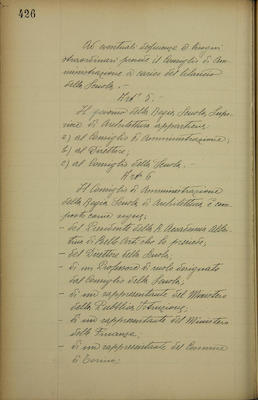 426
Ad eventuali deficienze di bisogni
straordinari provvede il Consiglio di Am-
ministrazione a carico del bilancio
della Scuola. -
Art° 5. -
Il governo della Regia Scuola Supe-
riore di Architettura appartiene:
a) al Consiglio di Amministrazione;
b) al Direttore;
c) al Consiglio della Scuola. -
Art° 6
Il Consiglio di Amministrazione
della Regia Scuola di Architettura è com-
posto come segue:
- del Presidente della R. Accademia Alber-
tina di Belle Arti che lo presiede;
- del Direttore della Scuola;
- di un Professore di ruolo designato
dal Consiglio della Scuola;
- di un rappresentante del Ministero
della Pubblica Istruzione;
- di un rappresentante del Ministero
delle Finanze;
- di un rappresentante del Comune
di Torino;